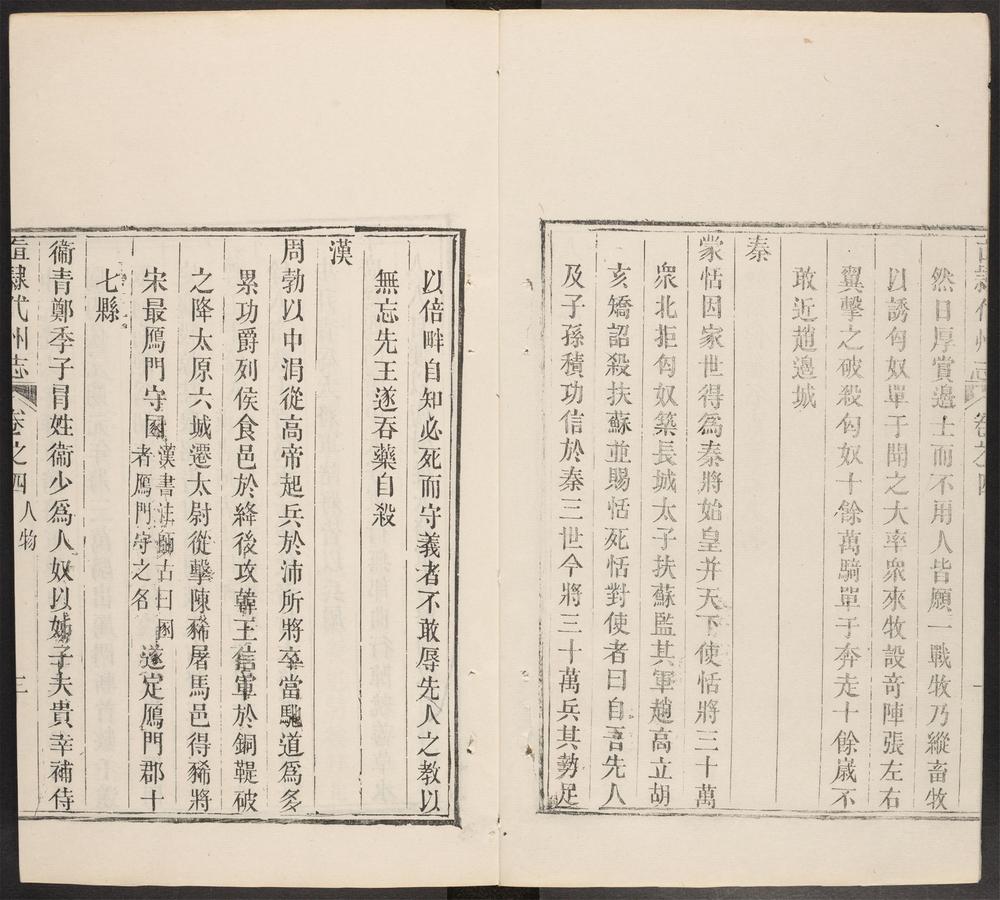 然日厚賞邊士而不用人皆願一戰牧乃縱畜牧
以誘匈奴單于聞之大率衆來牧設奇陣張左右
翼擊之破殺匈奴十餘萬騎單于奔走十餘歲不
敢近趙邊城
秦
蒙恬因家世得爲秦將始皇并天下使恬將三十萬
衆北拒匈奴築長城太子扶蘇監其軍趙高立胡
亥矯詔殺扶蘇並賜恬死恬對使者曰自吾先人
及子孫積功信於秦三世今將三十萬兵其勢足
以倍畔自知必死而守義者不敢辱先人之教以
無忘先王遂吞藥自殺
漢
周勃以中涓從高帝起兵於沛所將卒當馳道爲多
累功爵列侯食邑於絳後攻韓王信軍於銅鞮破
之降太原六城遷太尉從擊陳豨屠馬邑得豨將
宋最鴈門守圂漢書注師古曰圂者鴈門守之名遂定鴈門郡十
七縣
衞青鄭季子冐姓衞少爲人奴以姊子夫貴幸補侍
直隸代州志 卷之四 人物 三